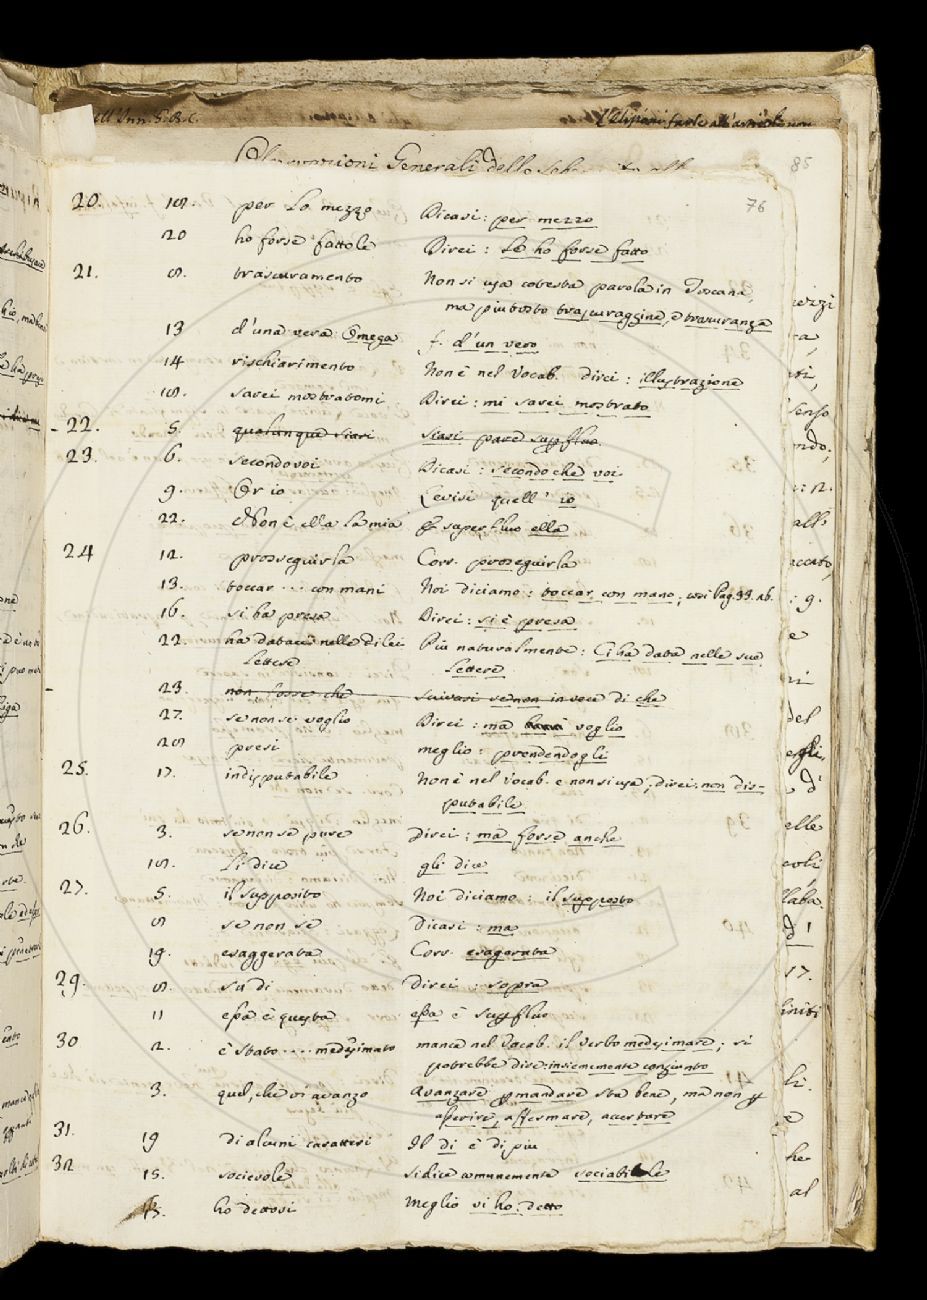 Generali
85
76
20. 18. per lo mezzo Dicasi: per mezzo
20 ho forse fattole Direi: Le ho forse fatto
21. 8. trascuramento Non si usa cotesta parola in Toscana,
ma piutosto trascuraggine, o trascuranza
13 d'una vera Omega f. d'un vero
14 rischiarimento Non è nel Vocab. direi: illustrazione
18. sarei mostratomi Direi: mi sarei mostrato
22. 5. qualunque siasi siasi pare supfluo
23. 6. secondo voi Dicasi: secondo che voi
9. Or io Levisi quell' io
22. Non è ella la mia È superfluo ella
24 12. prosseguirla Corr. proseguirla
13. toccar ... con mani Noi diciamo: toccar con mano; così Pag. 33. ab.
16. si ha presa Direi: si è presa
22. ha datacci nelle di lei Più naturalmente: Ci ha data nelle sue
Lettere Lettere
23. non fosse che scrivasi se non in vece di che
27. se non se voglio Direi: ma voglio
28 presi meglio: prendendogli
25. 17. indisputabile Non è nel Vocab. e non si usa; direi: non dis-
putabile
26. 3. se non se pure Direi: ma forse anche
18. Li dice gli dice
27. 5. il supposito Noi diciamo: il supposto
8 se non se Dicasi: ma
19. esaggerata Corr. esagerata
29. 8. su di Direi: sopra
11 essa è questa essa è supfluo
30 2. è stato .... medesimato manca nel Vocab. il verbo medesimare; si
potrebbe dire insiememente congiunto
3. quel, che vi avanzo Avanzare p mandare sta bene, ma non p
asserire, affermare, accertare
31. 19 di alcuni caratteri Il di è di più
32 15. socievole si dice comunemente sociabile
ho dettovi Meglio vi ho detto